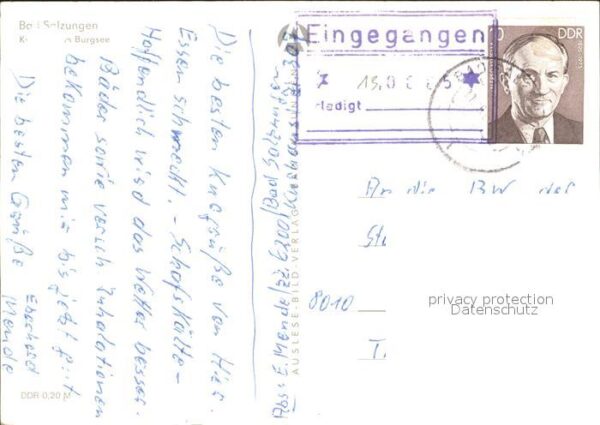 Bad Salzungen
Burgsee
Die besten Kurgrüße von Hier.
Essen schmeckt. - Schafskälte -
Hoffendlich wird das Wetter besser.
Bäder sowie versch. Inhalationen
bekommen mir bis jetzt gut
Die besten Grüße
Eberhard
Mende
DDR 0,20 M
Abs: E. Mende / zz. 6200 / Bad Salzungen
Kurhaus
307
AUSLESE-BILD-VERLAG
Eingegangen
ledigt
DDR
An die BW der
St
8010
T.
privacy protection
Datenschutz